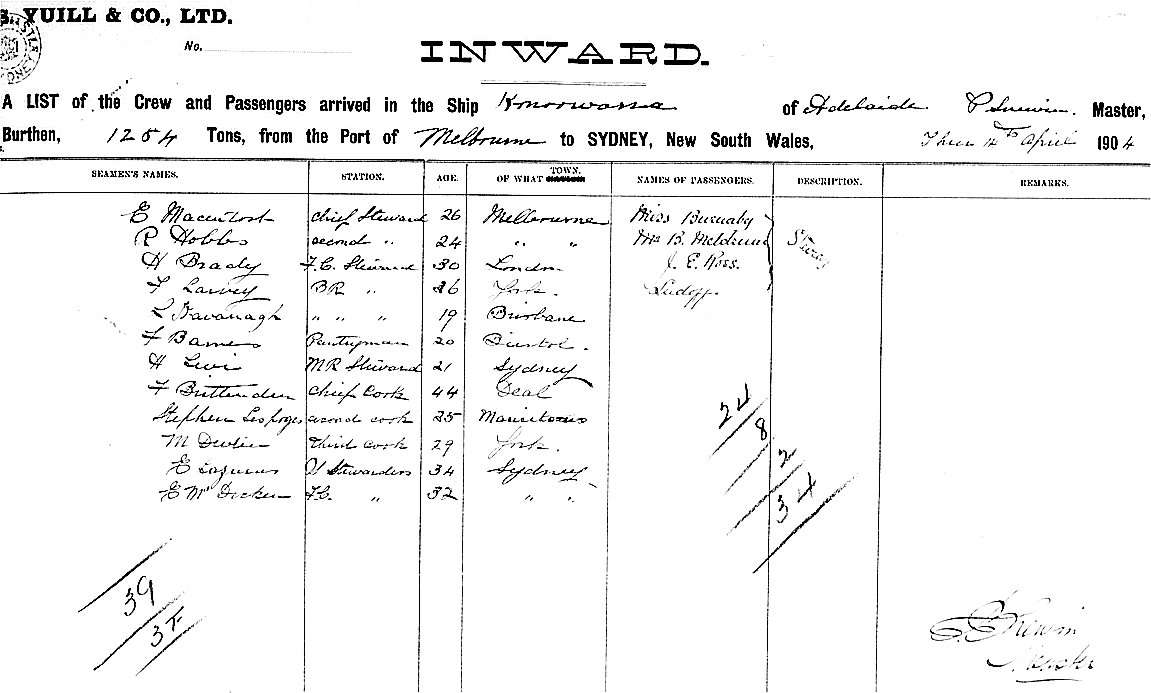 YUILL & CO., LTD.
No.
INWARD.
A LIST of the Crew and Passengers arrived in the Ship of Adelaide Master,
Burthen, 1254 Tons, from the Port of Melbourne to SYDNEY, New South Wales, April 1904
SEAMEN'S NAMES. STATION. AGE. OF WHAT TOWN. NAMES OF PASSENGERS. DESCRIPTION. REMARKS.
E Macintosh chief Steward 26 Melbourne Miss Burnaby
R Hobbs second " 24 " " B. Meldrum
H Brady F.C. Steward 30 London J. E. Ross.
F Larvey BR " 26 York.
L Kavanagh " " " 19 Brisbane
F Barnes Pantryman 20 Bristol.
H Levi MR Steward 21 Sydney
F Chief Cook 44 Deal
Stephen second cook 25 Mauritius
M Devlin third cook 29 York.
E Lazarus Stewardess 34 Sydney
E F.C. " 32 " "
24
8
2
34
39
Master